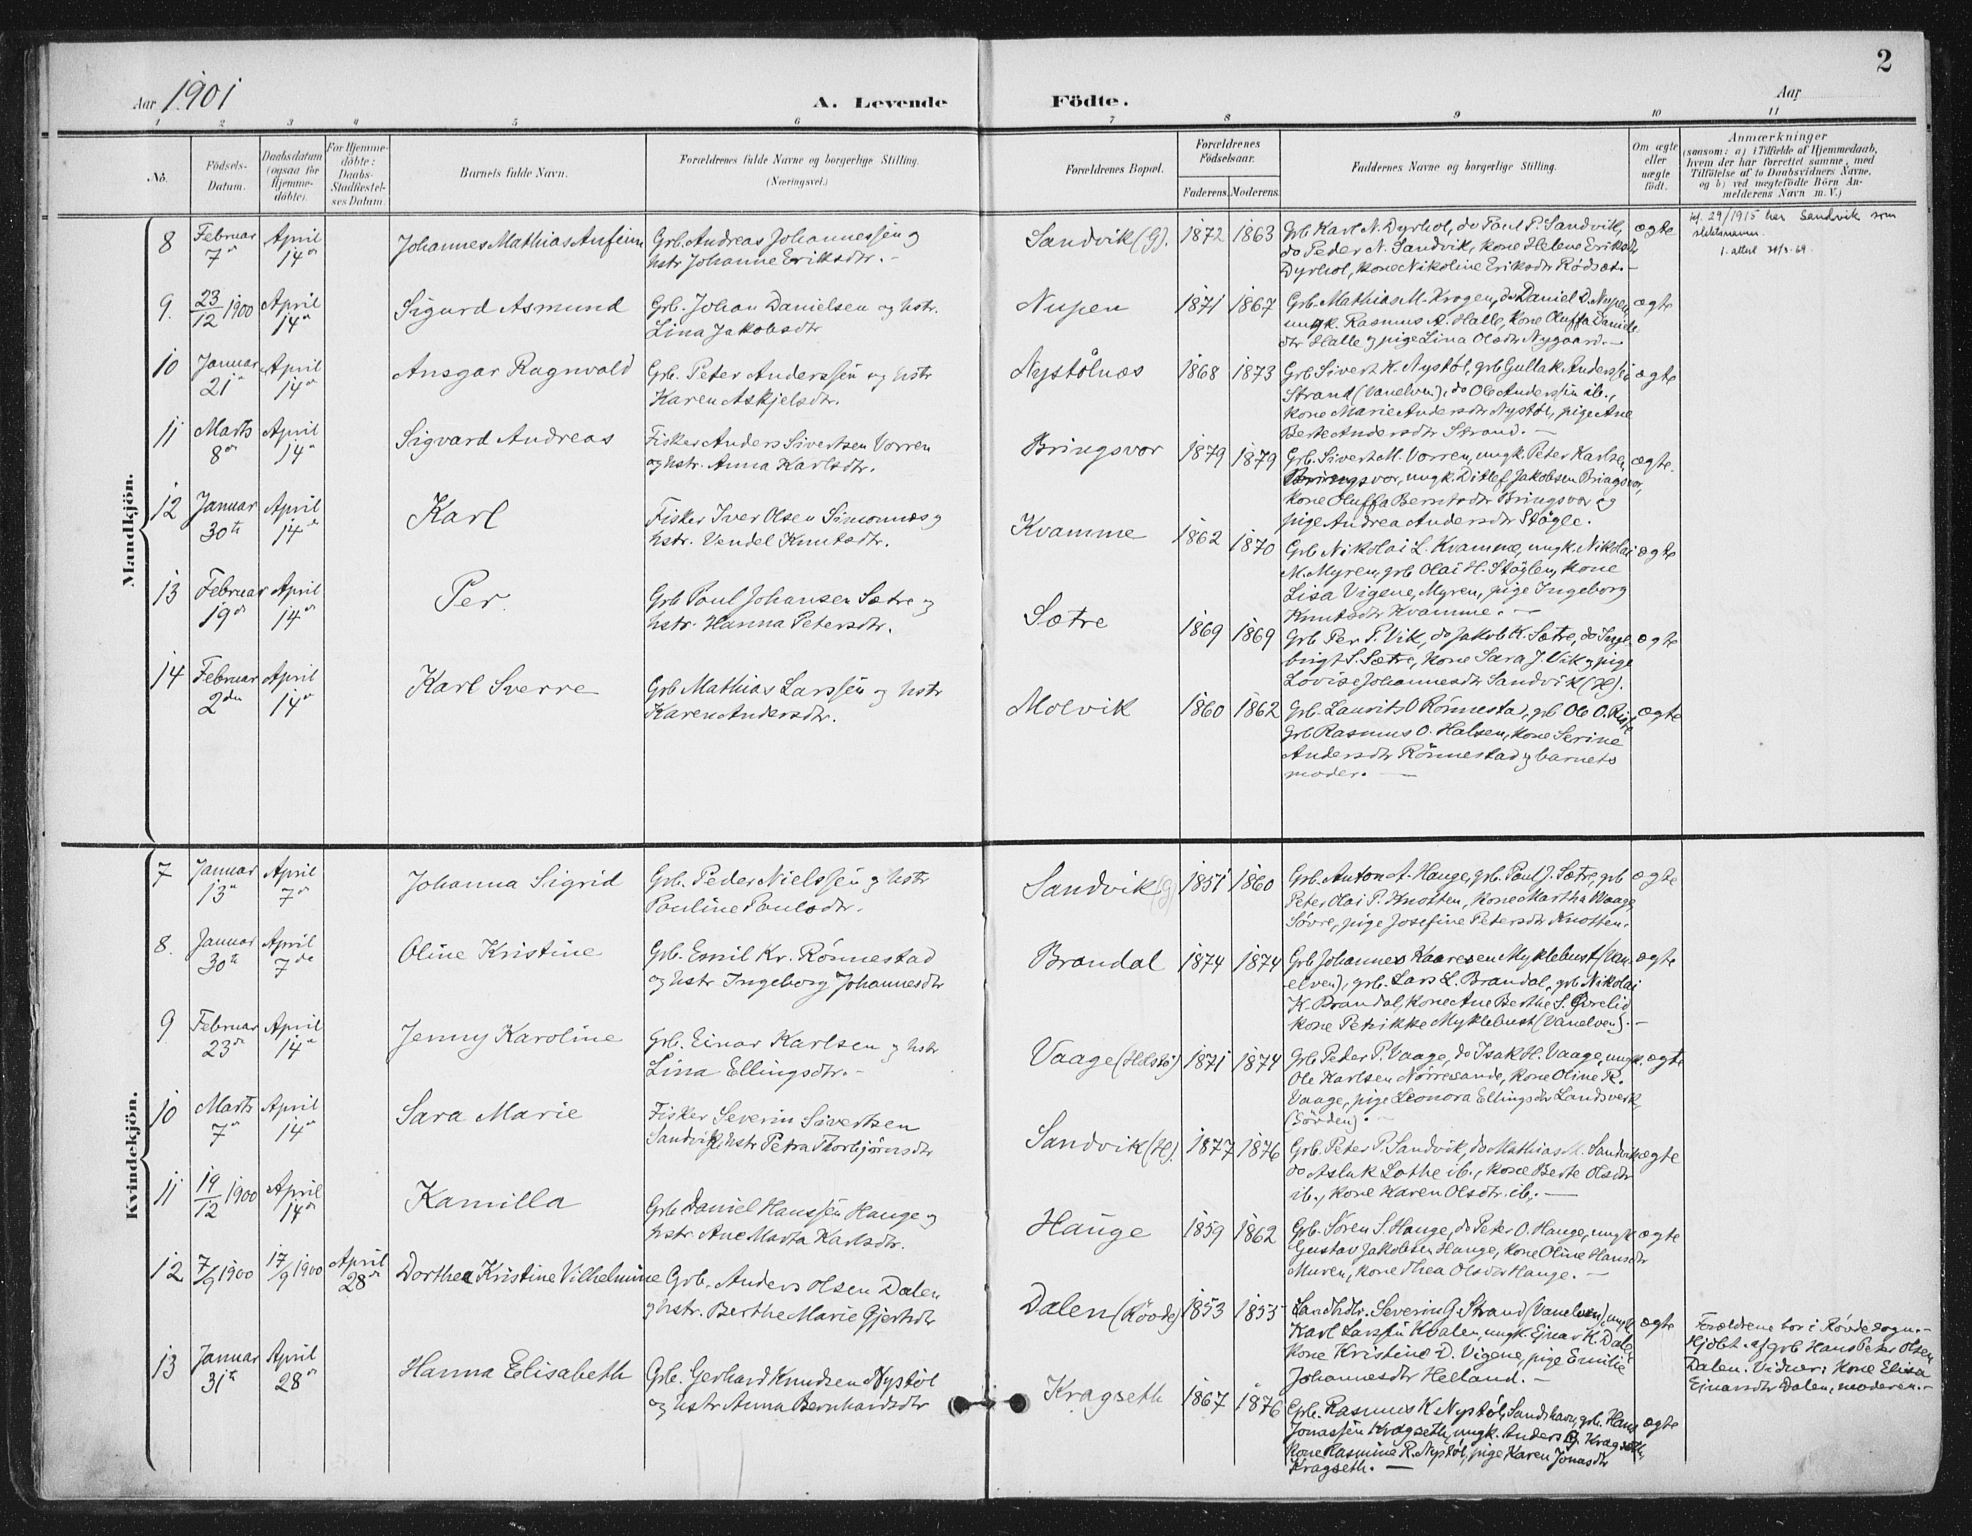 2
Aar 1901
A. Levende Födte.
Aar
1 2 3 4 5 6 7 8 9 10 11
No.
Födsels-
Datum.
Daabsdatum
(ogsaa för
Hjemme-
döbte).
For Hjemme-
döbte:
Daabs-
Stadfæstel-
ses Datum.
Barnets fulde Navn.
Forældrenes fulde Navne og borgerlige Stilling.
(Næringsvei.)
Forældrenes Bopæl.
Forældrenes
Födselsaar.
Faderens. Moderens.
Faddernes Navne og borgerlige Stilling.
Om ægte
eller
uægte
födt.
Anmærkninger
(saasom: a) i Tilfælde af Hjemmedaab,
hvem der har forrettet samme, med
Tilföielse af to Daabsvidners Navne,
og b) ved uægtefödte Börn An-
melderens Navn m. V.)
Mandkjön.
8 Februar 7de April 14de
Johannes Mathias Anfinn
Grb. Andreas Johannessen og
hstr Johanne Eriksdtr. -
Sandvik (G). 1872 1863
Grb Karl N. Dyrhol, do Paul P. Sandvik,
do Peder N. Sandvik, kone Helene Eriksdtr
Dyrhol, kone Nikoline Eriksdtr Rødset. -
ægte
kf. 29/1915 har Sandvik som
slektsnavn.
9. 23/12 1900 April 14de
Sigurd Asmund
Grb. Johan Danielsen og hstr.
Lina Jakobsdtr
Nupen 1871 1867
Grb. Mathias M. Krogen, do Daniel D. Nupen,
ungk. Rasmus A. Halle, kone Oluffa Daniels
dtr Halle og pige Lina Olsdtr Nygaard. -
ægte
10 Januar 21de April 14de
Ansgar Ragnvald
Grb. Peter Anderssen og hstr
Karen Askjelsdtr.
Nystølnæs 1868 1873
Grb Sivert K. Nystøl, grb Gullak Anderssen
Strand (Vanelven), do Ole Anderssen ib.,
kone Marie Andersdtr Nystøl, pige Ane
Berte Andersdtr Strand. -
ægte
11 Marts 8de April 14de
Sigvard Andreas
Fisker Anders Sivertsen Vorren
og hstr. Anna Karlsdtr.
Bringsvor 1879 1879
Grb. Sivert M. Vorren, ungk Peter Karlsen
Bringsvor, ungk. Ditlef Jakobsen Bringsvor,
kone Oluffa Berntsdtr Bringsvor og
pige Andrea Andersdtr Støyle.
ægte.
12 Januar 30te April 14de
Karl
Fisker Iver Olsen Simonnæs og
hstr. Vendel Knutsdtr.
Kvamme 1862 1870
Grb Nikolai L. Kvamme, ungk. Nikolai
M. Myren, grb Olai H. Støylen, kone
Lisa Vigene, Myren, pige Ingeborg
Knutsdtr Kvamme. -
ægte
13 Februar 19de April 14de
Per.
Grb Paul Johansen Sætre og
hstr. Hanna Petersdtr.
Sætre 1869 1869
Grb Per P. Vik, do Jakob K. Sætre, do Inge-
brigt S. Sætre, kone Sara J. Vik og pige
Lovise Johannesdtr Sandvik (H).
ægte
14 Februar 2den April 14de
Karl Sverre
Grb Mathias Larssen og hstr
Karen Andersdtr.
Molvik 1860 1862
Grb. Laurits O Rönnestad, grb Ole O.
Grb Rasmus O. Halsen, kone Serine
Andersdtr Rönnestad og barnets
moder. -
ægte
Kvindekjön.
7 Januar 13de April 7de
Johanna Sigrid
Grb. Peder Nielssen og hstr
Pauline Paulsdtr.
Sandvik (G) 1851 1860
Grb. Anton A. Hauge, grb. Paul J. Sætre, grb
Peter Olai P. Knotten, kone Martha Waage,
Søvre, pige Josefine Petersdtr Knotten.
ægte
8. Januar 30te April 7de
Oline Kristine
Grb. Emil Kr. Rönnestad
og hstr Ingeborg Johannesdtr
Brandal 1874 1874
Grb Johannes Kaaresen Myklebust (Van-
elven), grb. Lars L. Brandal, grb Nikolai
K. Brandal, kone Ane Berthe S.
kone Petrikke Myklebust (Vanelven). -
ægte
9 Februar 23de April 14de
Jenny Karoline
Grb. Einar Karlsen og hstr
Lina Ellingsdtr. -
Vaage 1871 1874
Grb Peter P. Vaage, do Isak H. Vaage, ungk.
Ole Karlsen Nørresande, kone Oline R.
Vaage, pige Leonora Ellingsdtr Landsverk,
ægte
10 Marts 7de April 14de
Sara Marie
Fisker Severin Sivertsen
Sandvik og hstr Petra Thorbjørnsdtr
Sandvik (H). 1877 1876
Grb. Peter P. Sandvik, do Mathias M. Sandvik
do Aslak Lothe ib., kone Berte Olsdtr
ib., kone Karen Olsdtr ib. -
ægte
11 19/12 1900 April 14de
Kamilla
Grb Daniel Hanssen Hauge og
hstr Ane Marta Karlsdtr.
Hauge 1859 1862
Grb. Søren S. Hauge, do Peter O. Hauge, ungk
Gustav Jakobsen Hauge, kone Oline Hansdtr
Muren, kone Thea Olsdtr Hauge. -
ægte
12 7/9 1900 17/9 1900 April 28de
Dorthea Kristine Vilhelmine
Grb. Anders Olsen Dalen
og hstr. Berthe Marie Gjertsdtr
Dalen (Røvde) 1853 1855
Landhdlr. Severin G. Strand (Vanelven), ungk
Karl Larssen Kvalen, ungk Ejnar K. Dalen
kone Kristine D. Vigene, pige Emilie
Johannesdtr Heeland. -
ægte
Forældrene bor i Røvde sogn. -
Hjdbt. af grb Hans Peter Olsen
Dalen. Vidner: Kone Elisa
Ejnarsdtr Dalen, moderen. -
13 Januar 31te April 28de
Hanna Elisabeth
Grb. Gerhard Knudsen Nystøl
og hstr Anna Bernhardsdtr
Kragseth 1867 1876
Grb. Rasmus K. Nystøl, Sandshavn, grb. Hans
Jonassen Kragseth, ungk. Anders G. Kragseth,
kone Rasmine R. Nystøl, pige Karen Jonasdtr
Kragseth. -
ægte